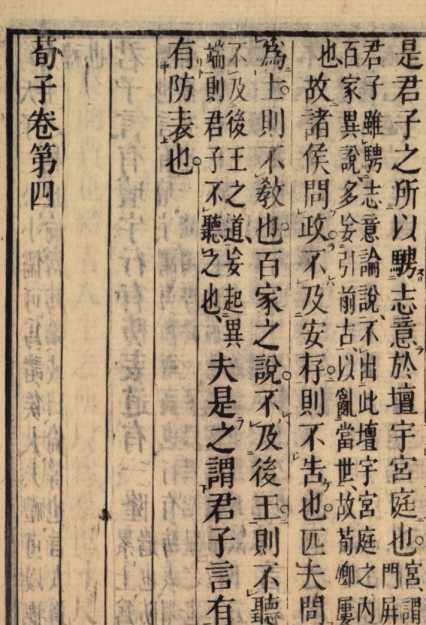 是君子之所以騁志意於壇宇宮庭也宮謂
門屏
君子雖騁志意論說不出此壇宇宮庭之內
百家異說多妄引前古以亂當世故荀卿屢
也故諸侯問政不及安存則不告也匹夫問
爲士則不敎也百家之說不及後王則不聽
不及後王之道妄起異
端則君子不聽之也夫是之謂君子言有
有防表也
荀子卷第四